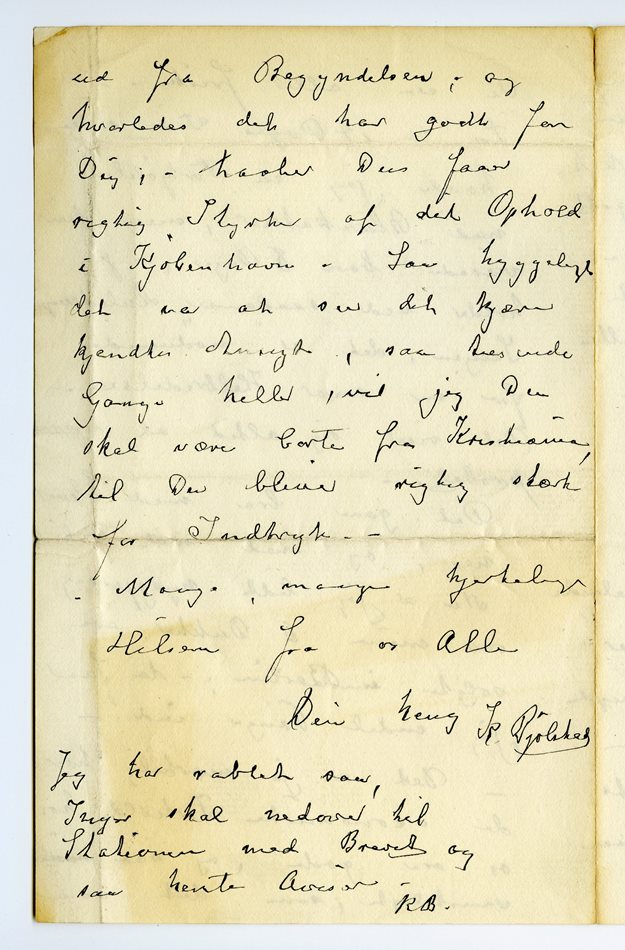 ud fra Begyndelsen, og
hvorledes det har godt for
Dig; - tænker Du faar
rigtig Styrke af det Ophold
i Kjöbenhavn - Saa hyggeligt
det var at see dit kjære
kjendte Ansigt, saa
Gange heller, vil jeg Du
skal være borte fra Kristiania,
til Du bliver rigtig stærk
for Indtryk. -
- Mange, mange hjertelige
Hilsener fra os Alle
Din heng K Bjölstad
Jeg har rablet saa,
Inga skal nedover til
Stationen med Brevet og
saa hente Aviser
KB.